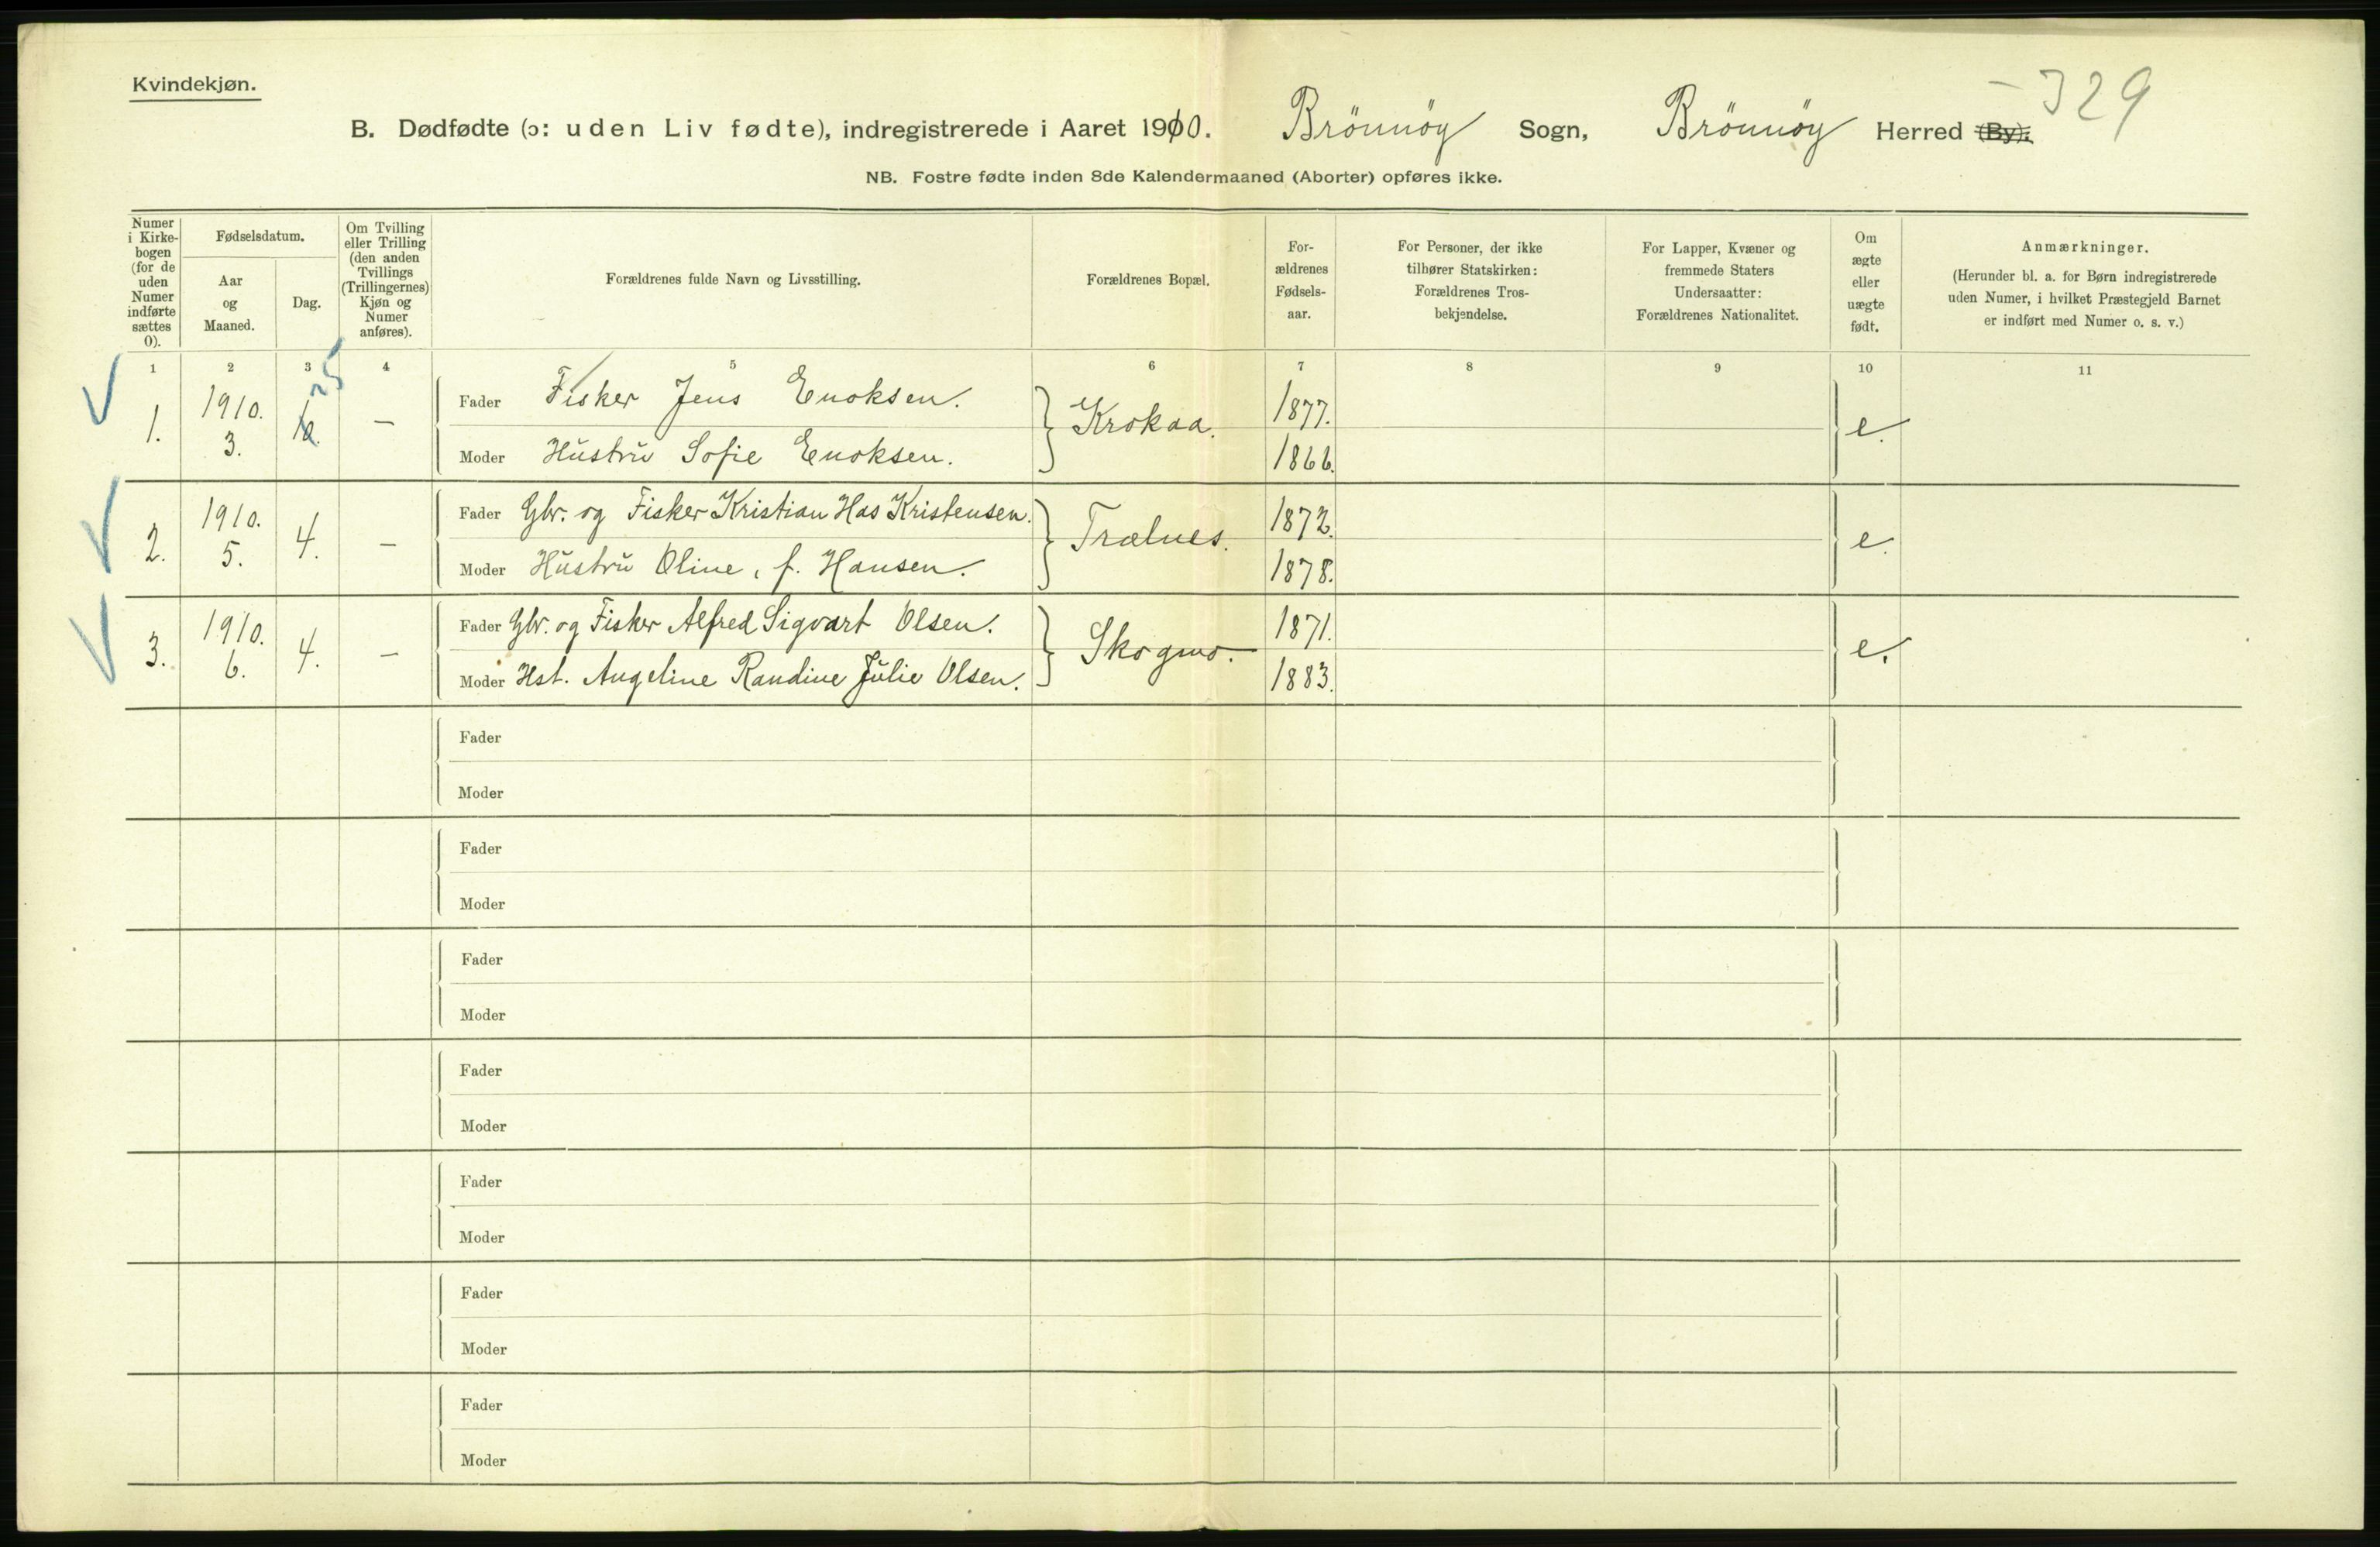 Kvindekjøn.
329
B. Dødfødte (ɔ: uden Liv fødte), indregistrerede i Aaret 1910. Brönnöy Sogn, Brönnöy Herred (By).
NB. Fostre fødte inden 8de Kalendermaaned (Aborter) opføres ikke.
Numer
i Kirke-
bogen
(for de
uden
Numer
indførte
sættes
0).
Fødselsdatum.
Aar
og
Maaned.
Dag.
Om Tvilling
eller Trilling
(den anden
Tvillings
(Trillingernes)
Kjøn og
Numer
anføres).
Forældrenes fulde Navn og Livsstilling.
Forældrenes Bopæl.
For-
ældrenes
Fødsels-
aar.
For Personer, der ikke
tilhører Statskirken:
Forældrenes Tros-
bekjendelse.
For Lapper, Kvæner og
fremmede Staters
Undersaatter:
Forældrenes Nationalitet.
Om
ægte
eller
uægte
født.
Anmærkninger.
(Herunder bl. a. for Børn indregistrerede
uden Numer, i hvilket Præstegjeld Barnet
er indført med Numer o. s. v.)
1 2 3 4 5 6 7 8 9 10 11
1. 1910. 3. 25 — Fader Fisker Jens Enoksen. Krokaa. 1877. e.
Moder Hustru Sofie Enoksen. 1866.
2. 1910. 5. 4. — Fader Gbr. og Fisker Kristian Has Kristensen. Trælnes. 1872. e.
Moder Hustru Oline, f. Hansen. 1878.
3. 1910. 6. 4. — Fader Gbr. og Fisker Alfred Sigvart Olsen. Skogmo. 1871. e.
Moder Hst. Angeline Randine Julie Olsen. 1883.
Fader
Moder
Fader
Moder
Fader
Moder
Fader
Moder
Fader
Moder
Fader
Moder
Fader
Moder